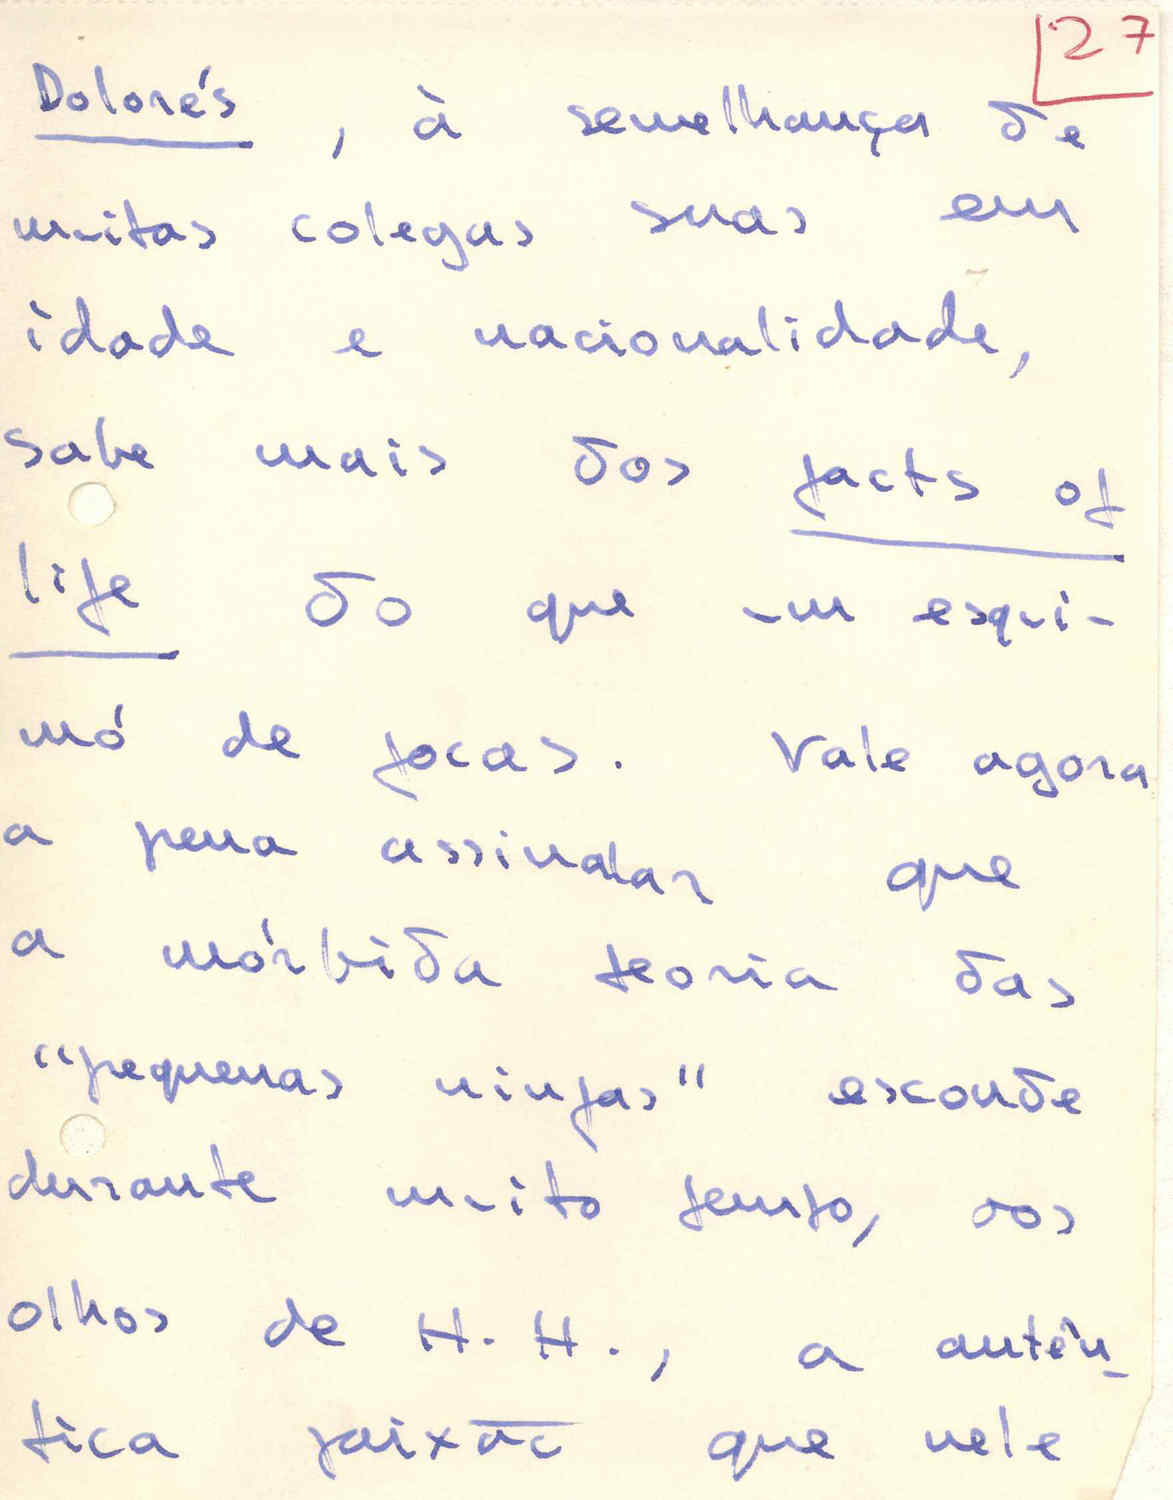 27
Dolores, à semelhança de
muitas colegas suas em
idade e nacionalidade,
sabe mais dos facts of
life do que um esqui-
mó de focas. Vale agora
a pena assinalar que
a mórbida teoria das
“pequenas ninfas” esconde
durante muito tempo, aos
olhos de H. H., a autên-
tica paixão que nele